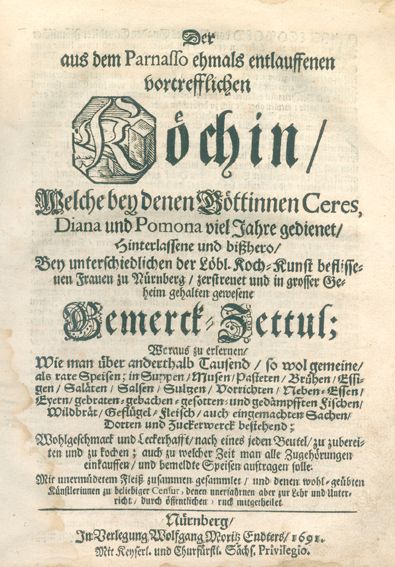 Der
aus dem Parnasso ehmals entlauffenen
vortrefflichen
Köchin/
Welche bey denen Göttinnen Ceres,
Diana und Pomona viel Jahre gedienet/
Hinterlassene und bißhero/
Bey unterschiedlichen der Löbl. Koch-Kunst beflisse-
nen Frauen zu Nürnberg/ zerstreuet und in grosser Ge-
heim gehalten gewesene
Bemerck-Zettul;
Woraus zu erlernen/
Wie man über anderthalb Tausend/ so wol gemeine/
als rare Speisen; in Suppen/ Musen/ Pasteten/ Brühen/ Essi-
gen/ Saläten/ Salsen/ Sultzen/ Vorrichten/ Neben-Essen/
Eyern/ gebraten-gebachen-gesotten-und gedämpfften Fischen/
Wildbrät/ Geflügel/ Fleisch/ auch eingemachten Sachen/
Dorten und Zuckerwerck bestehend;
Wohlgeschmack und Leckerhafft/ nach eines jeden Beutel/ zu zuberei-
ten und zu kochen; auch zu welcher Zeit man alle Zugehörungen
einkauffen/ und bemeldte Speisen auftragen solle.
Mit unermüdetem Fleiß zusammen gesammlet/ und denen wohl-geübten
Künstlerinnen zu beliebiger Censur, denen unerfahrnen aber zur Lehr und Unter-
richt/ durch öffentlichen Druck mitgetheilet.
Nürnberg/
In Verlegung Wolfgang Moritz Endters/ 1691.
Mit Keyserl. und Churfürstl. Sächs. Privilegio.